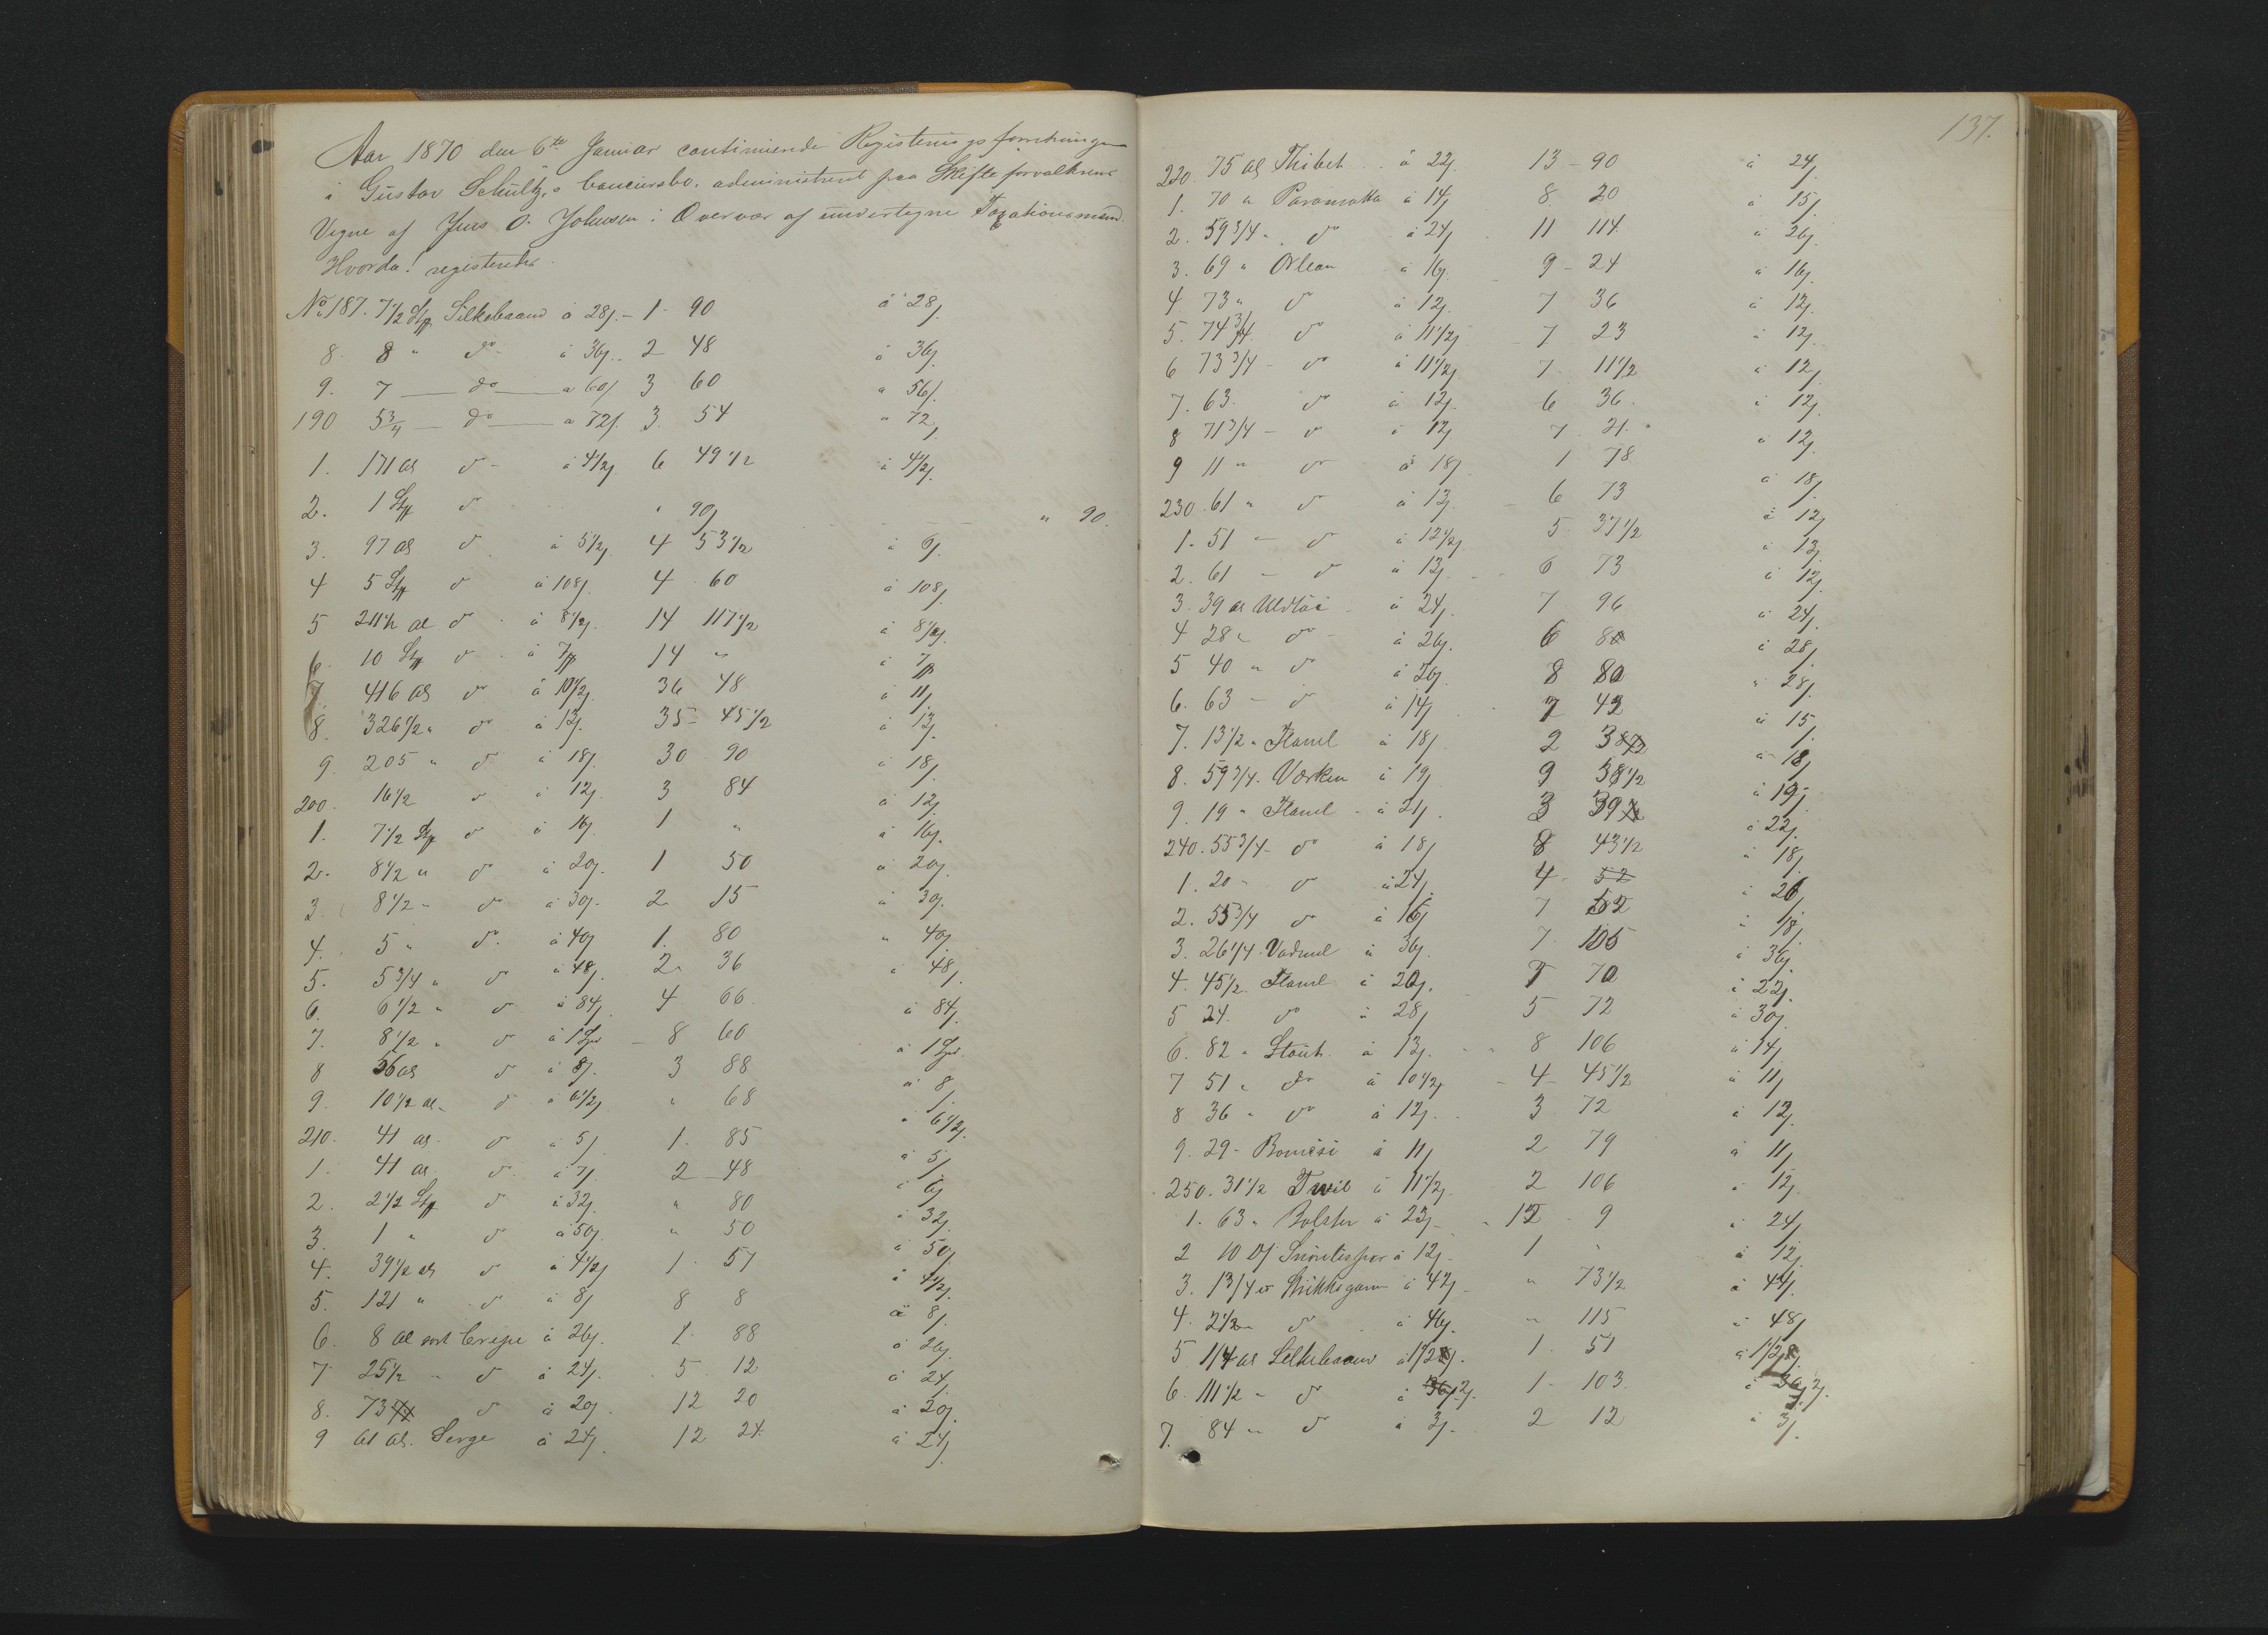 Aar 1870 den 6te Januar continuerede Registeringsforretningen
i Gustav Schultz's Concursbo, administreret paa Skifteforvalterens
Vegne af Jens O. Johnsen i Overvær af undertegne Taxationsmænd.
Hvorda! registeredes.
No 187. 7 1/2 Stk Silkebaand à 28ß. - 1 - 90 à 28ß
8. 8 " do à 36ß. 2 48 à 36ß.
9. 7 — do — a 60ß 3 60 a 56ß.
190 5 3/4 — do — a 72ß. 3. 54 " 72ß
1. 171 al do - à 4 1/2ß 6 49 1/2 à 4 1/2ß.
2. 1 Stk do " 90ß - - - " 90.
3. 97 al do à 5 1/2ß 4 53 1/2 à 6ß.
4 5 Stk do à 108ß. 4 60 à 108ß
5 211 1/2 al do à 8 1/2ß. 14 117 1/2 à 8 1/2ß.
6. 10 Stk do à 7 14 " à 7
7. 416 al do à 10 1/2ß. 36 48 à 11ß
8. 326 1/2 " do à 13ß. 35 - 45 1/2 à 13ß.
9. 205 " do à 18ß. 30 90 à 18ß
200. 16 1/2 do à 12ß. 3 84 à 12ß
1. 7 1/2 Stk do à 16ß. 1 " à 16ß.
2. 8 1/2 " do à 20ß. 1 50 à 20ß.
3 8 1/2 " do à 30ß. 2 15 à 30ß.
4. 5 " do à 40ß 1. 80 " 40ß.
5. 5 3/4 " do à 48ß. 2. 36 à 48ß
6. 6 1/2 " do à 84ß. 4 66 à 84ß.
7. 8 1/2 " do à 1 Spd - 8 60 à 1 Spd.
8 56 al do à 8ß. 3 88 à 8ß
9. 10 1/2 al. do à 6 1/2ß " 68 " 6 1/2ß.
210. 41 al. do à 5ß 1. 85 à 5ß
1. 41 al. do à 7ß 2 - 48 à 6ß
2. 2 1/2 Stk do à 32ß. " 80 à 32ß.
3. 1 " do à 50ß. " 50 à 50ß
4. 39 1/2 al do à 4 1/2ß 1. 57 à 4 1/2ß.
5. 121 " do à 8ß 8 8 à 8ß.
6. 8 al sort Crepe à 26ß. 1. 88 à 26ß.
7 25 1/2 " do à 24ß. 5 12 à 24ß.
8. 73 do à 20ß. 12 20 à 20ß.
9 61 al. Serge à 24ß. 12 24. à 24ß.
137.
220. 75 al Thibet à 22ß. 13 - 90 à 24ß.
1. 70 " Paramatta à 14ß 8 20 à 15ß.
2. 59 3/4 " do à 24ß 11 114 à 26ß.
3. 69 " Orlean à 16ß. 9 - 24 à 16ß.
4 73 " do à 12ß. 7 36 à 12ß.
5. 74 3/4 do à 11 1/2ß 7 23 à 12ß.
6 73 3/4 - do à 11 1/2ß 7 11 1/2 à 12ß
7. 63. do à 12ß. 6 36. à 12ß.
8 71 3/4 - do à 12ß 7. 21. à 12ß.
9 11 " do à 18ß 1 78 à 18ß.
230. 61 " do à 13ß 6 73 à 12ß
1. 51 - do à 12 1/2ß 5 37 1/2 à 13ß
2. 61 - do à 13ß. 6 73 à 12ß.
3. 39 al Uldtøi à 24ß. 7 96 à 24ß.
4 28 " do à 26ß. 6 8 à 28ß
5 40 " do à 26ß 8 80 " 28ß.
6. 63 - do à 14ß 7 42 à 15ß.
7. 13 1/2 " Flanel à 18ß 2 3 à 18ß
8. 59 3/4. Værken à 19ß 9 58 1/2 à 19ß
9. 19 " Flanel - à 21ß. 3 39 à 22ß.
240. 55 3/4 - do à 18ß 8 43 1/2 à 18ß.
1. 20 - do à 24ß. 4 - 52 à 26ß
2. 55 3/4 do à 16ß 7 52 à 18ß.
3. 26 1/4. Vadmel à 36ß. 7. 105 à 36ß.
4. 45 1/2. Flanel à 20ß. 7 70 à 22ß.
5 24. do à 28ß 5 72 à 30ß.
6. 82 " Stout. à 13ß. 8 106 à 14ß.
7 51 " do à 10 1/2ß - 4 - 45 1/2 à 11ß
8 36 " do à 12ß. 3 72 à 12ß.
9. 29 - Bomesi à 11ß 2 79 à 11ß
250. 31 1/2 Twil à 11 1/2ß. 2 106 à 12ß.
1. 63 " Bolster à 23ß - 12 - 9 à 24ß
2 10 Ds Snorlisser à 12ß - 1 " à 12ß.
3. 1 3/4 " Strikkegarn à 42ß - " 73 1/2 à 44ß.
4. 2 1/2 " do à 46ß. " 115 à 48ß
5 114 al Silkebaand à 1 1/2ß. 1. 51 à 1 1/2ß.
6. 111 1/2 " do à 2ß. 1 - 103. à 2ß.
7. 84 " do à 3ß. 2 12 à 3ß.